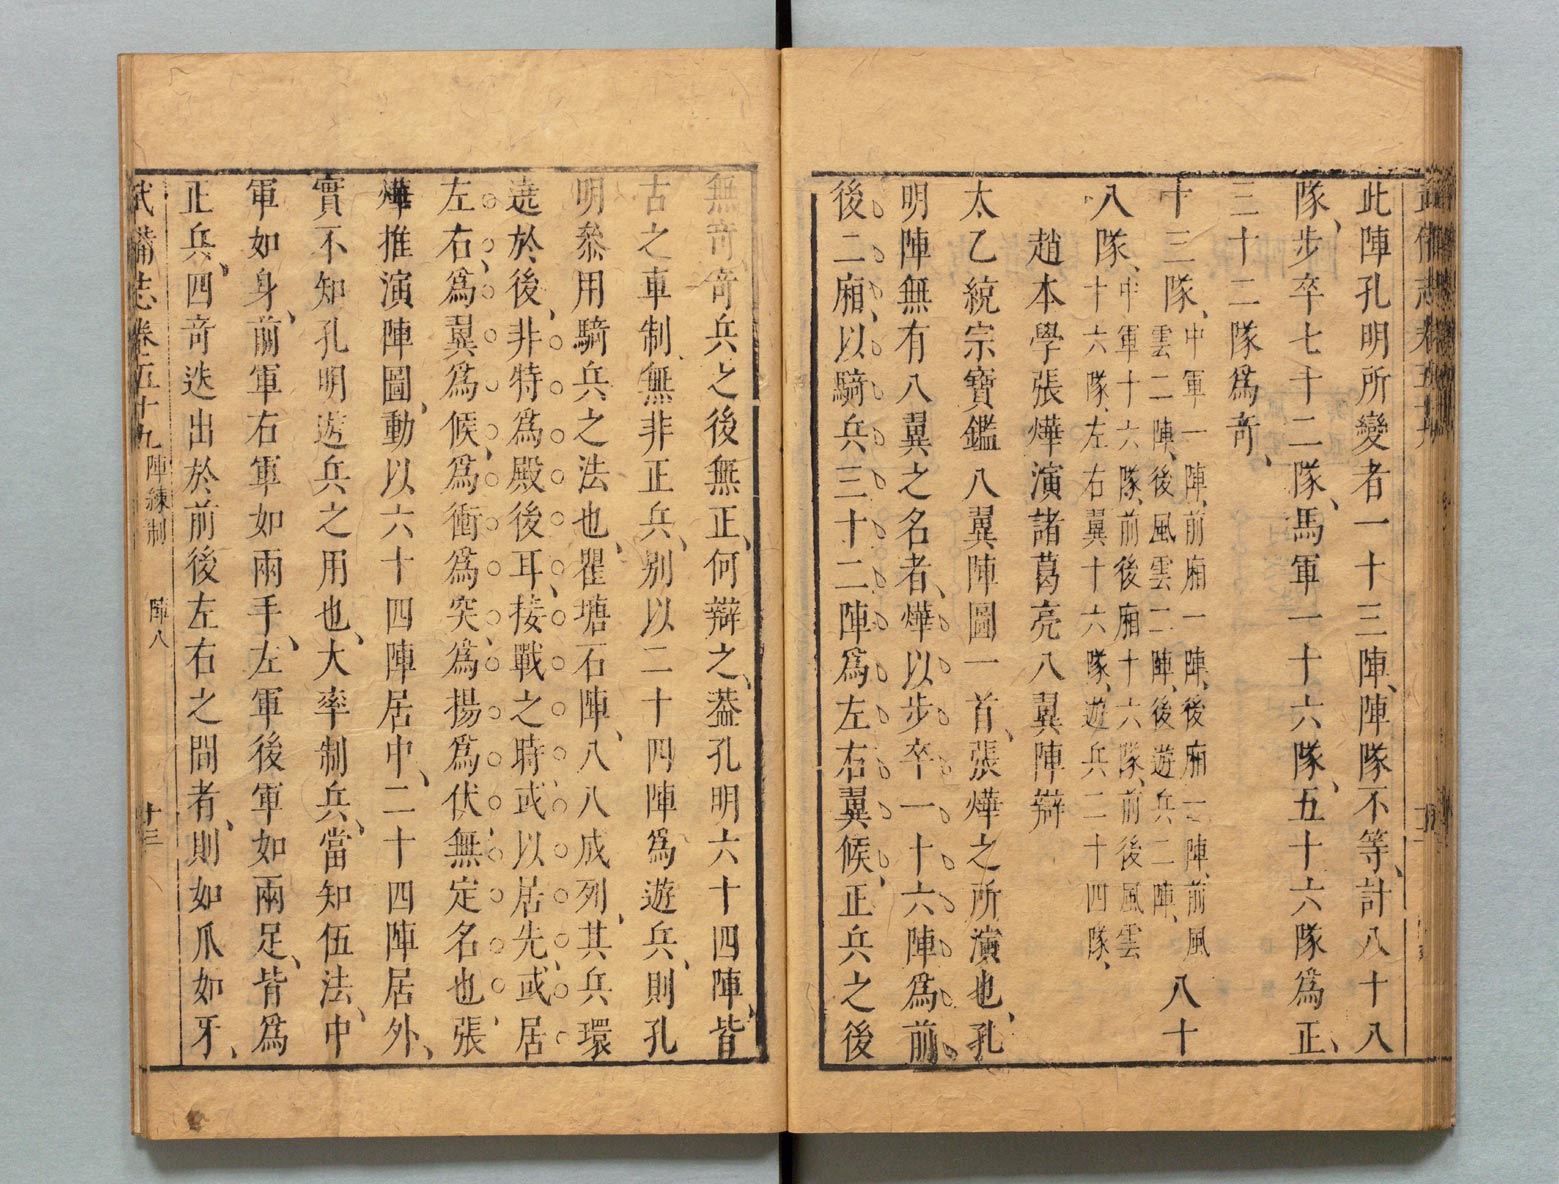 武備志卷五十九
此陣孔明所變者一十三陣、陣隊不等、計八十八
隊、步卒七十二隊、馬軍一十六隊、五十六隊爲正、
三十二隊爲奇、
十三隊、中軍一陣、前廂一陣、後廂一陣、前風
雲二陣、後風雲二陣、後遊兵二陣、八十
八隊、中軍十六隊、前後廂十六隊、前後風雲
十六隊、左右翼十六隊、遊兵二十四隊、
趙本學張燁演諸葛亮八翼陣辯
太乙統宗寶鑑八翼陣圖一首、張燁之所演也、孔
明陣無有八翼之名者、燁以步卒一十六陣爲前
後二廂、以騎兵三十二陣爲左右翼候、正兵之後
無奇、奇兵之後無正、何辯之、葢孔明六十四陣、皆
古之車制、無非正兵、別以二十四陣爲遊兵、則孔
明叅用騎兵之法也、瞿塘石陣、八八成列、其兵環
遶於後、非特爲殿後耳、接戰之時、或以居先、或居
左右、爲翼爲候、爲衝爲突、爲揚爲伏無定名也、張
燁推演陣圖、動以六十四陣居中、二十四陣居外、
實不知孔明遊兵之用也、大率制兵、當知伍法、中
軍如身、前軍右軍如兩手、左軍後軍如兩足、皆爲
正兵、四奇迭出於前後左右之間者、則如爪如牙、
武備志卷五十九 陣練制 陣八 十三